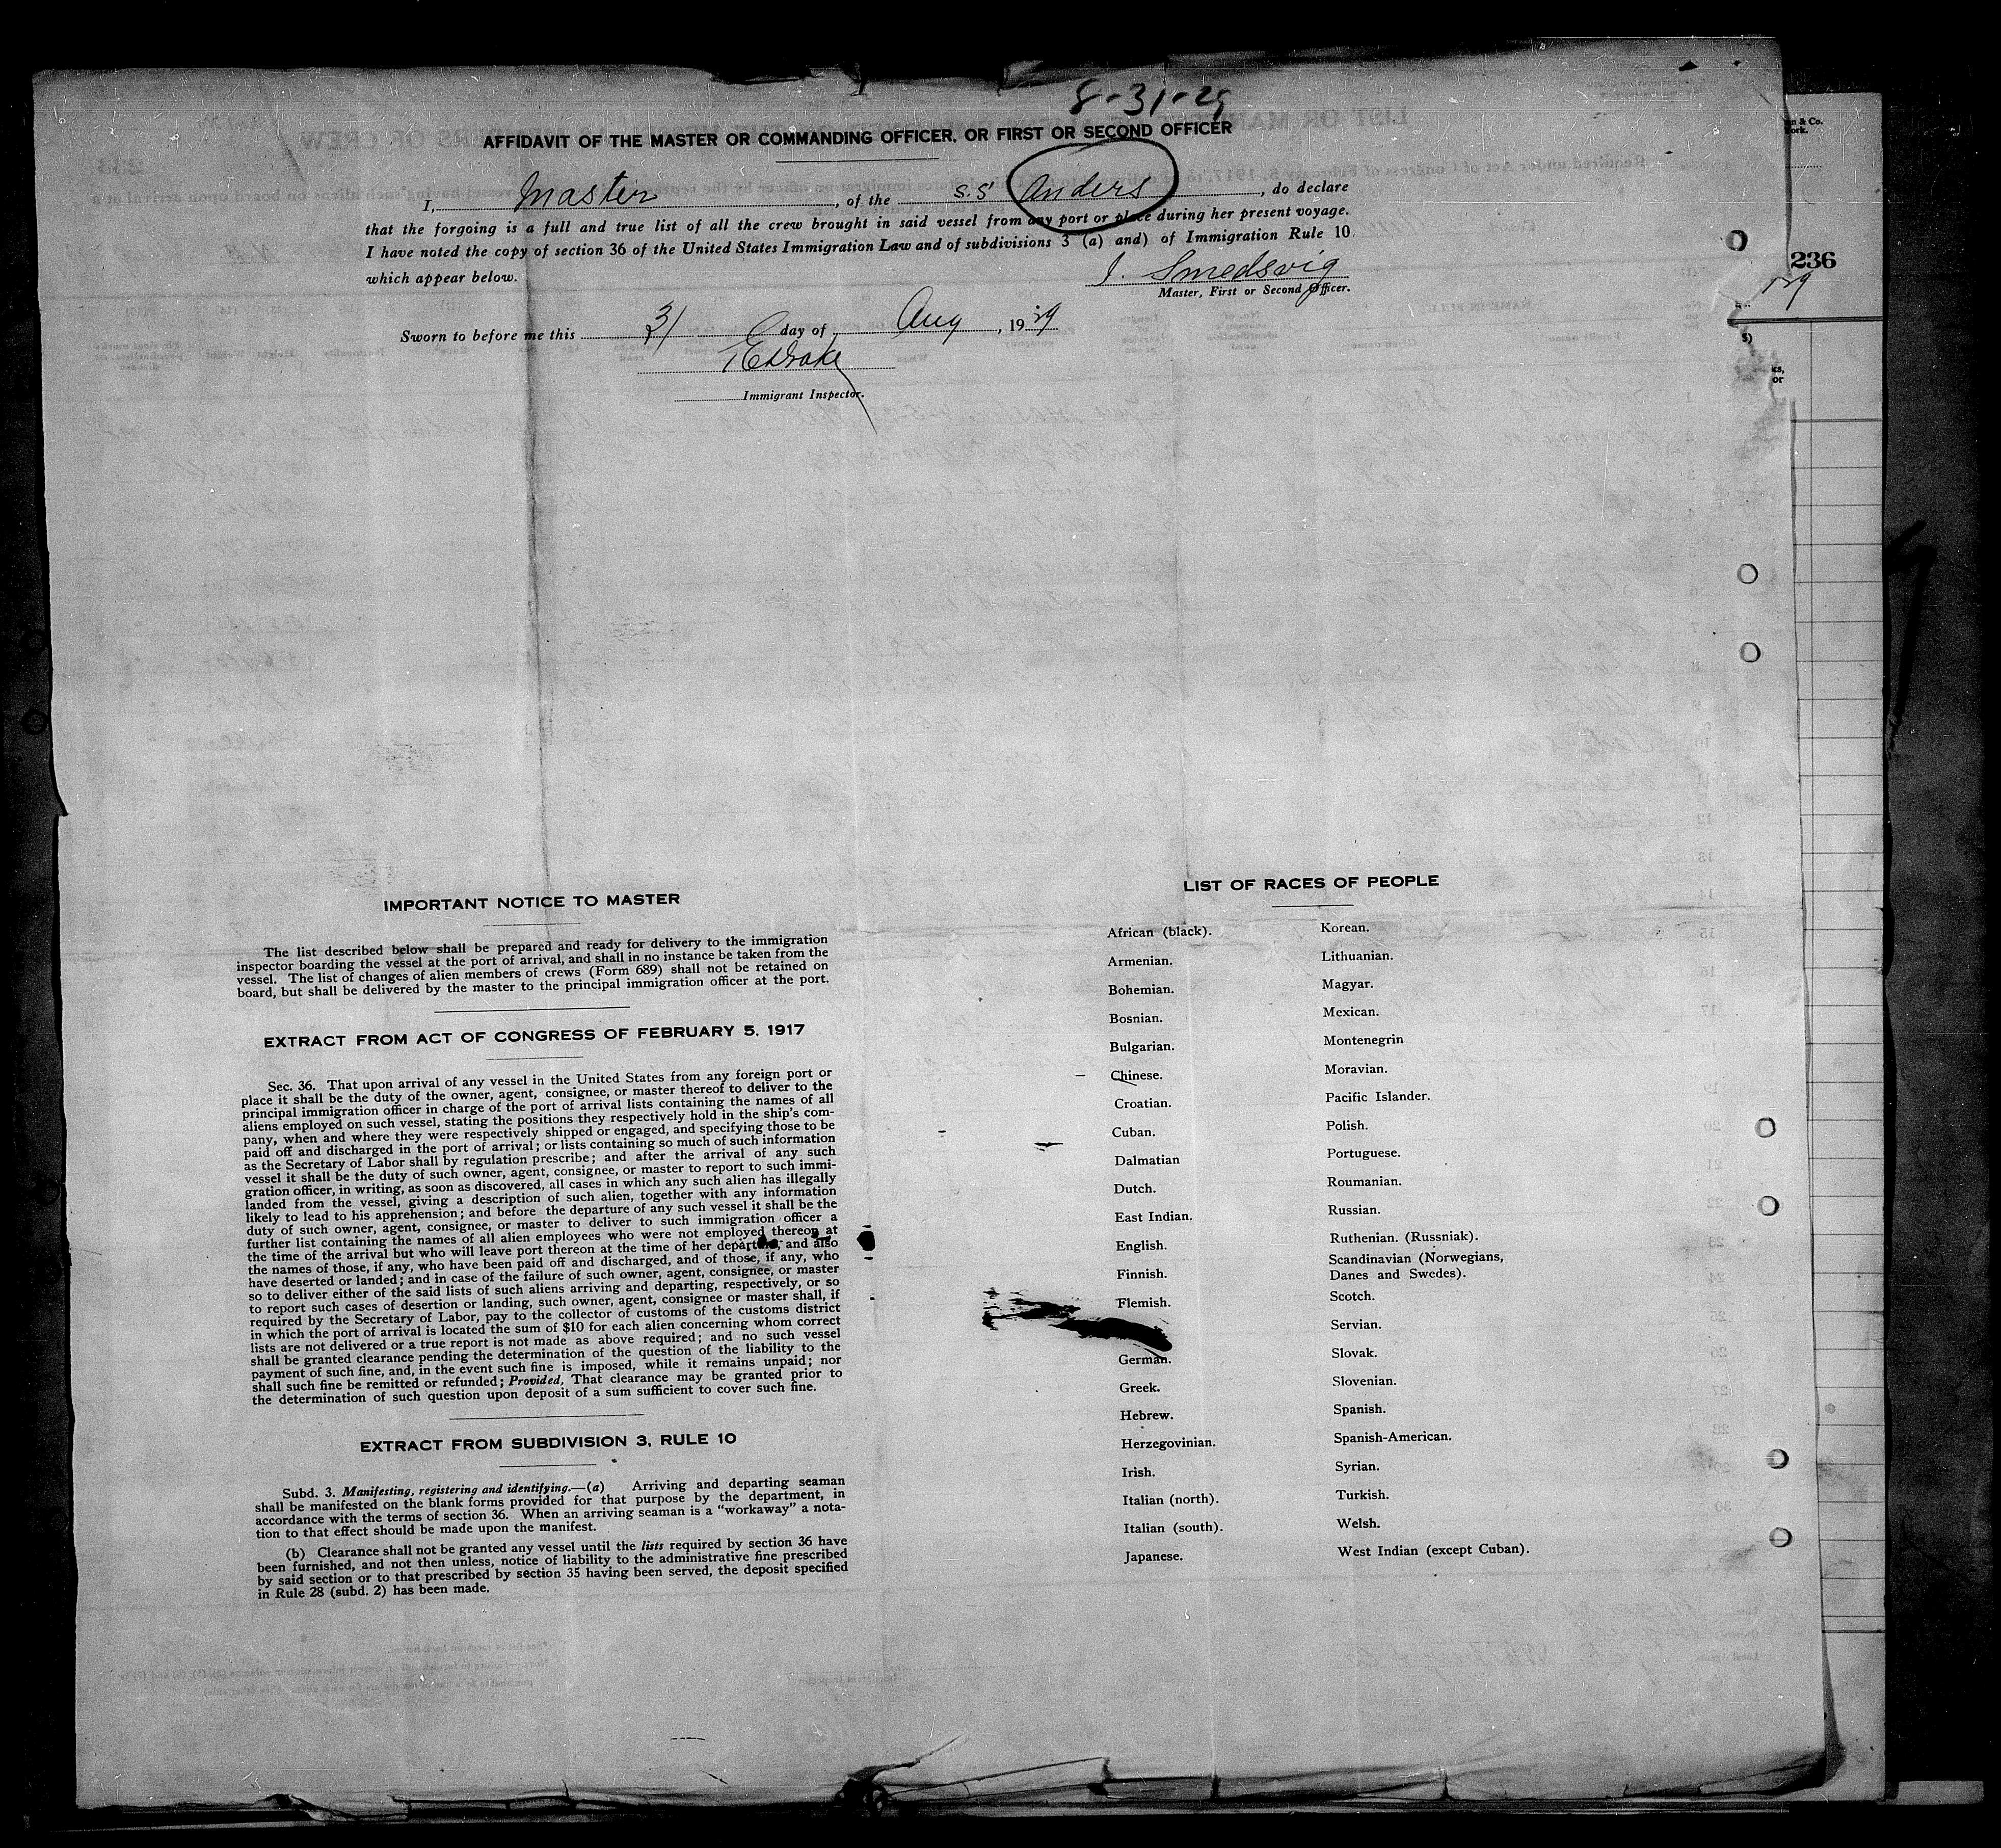 8-31-29
AFFIDAVIT OF THE MASTER OR COMMANDING OFFICER, OR FIRST OR SECOND OFFICER
I, Master, of the S.S. Anders, do declare
that the forgoing is a full and true list of all the crew brought in said vessel from any port or place during her present voyage.
I have noted the copy of section 36 of the United States Immigration Law and of subdivisions 3 (a) and) of Immigration Rule 10,
which appear below.
J. Smedsvig
Master, First or Second Officer.
Sworn to before me this 31 day of Aug, 1929
Immigrant Inspector.
236
IMPORTANT NOTICE TO MASTER
The list described below shall be prepared and ready for delivery to the immigration
inspector boarding the vessel at the port of arrival, and shall in no instance be taken from the
vessel. The list of changes of alien members of crews (Form 689) shall not be retained on
board, but shall be delivered by the master to the principal immigration officer at the port.
EXTRACT FROM ACT OF CONGRESS OF FEBRUARY 5, 1917
Sec. 36. That upon arrival of any vessel in the United States from any foreign port or
place it shall be the duty of the owner, agent, consignee, or master thereof to deliver to the
principal immigration officer in charge of the port of arrival lists containing the names of all
aliens employed on such vessel, stating the positions they respectively hold in the ship's com-
pany, when and where they were respectively shipped or engaged, and specifying those to be
paid off and discharged in the port of arrival; or lists containing so much of such information
as the Secretary of Labor shall by regulation prescribe; and after the arrival of any such
vessel it shall be the duty of such owner, agent, consignee, or master to report to such immi-
gration officer, in writing, as soon as discovered, all cases in which any such alien has illegally
landed from the vessel, giving a description of such alien, together with any information
likely to lead to his apprehension; and before the departure of any such vessel it shall be the
duty of such owner, agent, consignee, or master to deliver to such immigration officer a
further list containing the names of all alien employees who were not employed thereon at
the time of the arrival but who will leave port thereon at the time of her departure, and also
the names of those, if any, who have been paid off and discharged, and of those, if any, who
have deserted or landed; and in case of the failure of such owner, agent, consignee, or master
so to deliver either of the said lists of such aliens arriving and departing, respectively, or so
to report such cases of desertion or landing, such owner, agent, consignee or master shall, if
required by the Secretary of Labor, pay to the collector of customs of the customs district
in which the port of arrival is located the sum of $10 for each alien concerning whom correct
lists are not delivered or a true report is not made as above required; and no such vessel
shall be granted clearance pending the determination of the question of the liability to the
payment of such fine, and, in the event such fine is imposed, while it remains unpaid; nor
shall such fine be remitted or refunded; Provided, That clearance may be granted prior to
the determination of such question upon deposit of a sum sufficient to cover such fine.
EXTRACT FROM SUBDIVISION 3, RULE 10
Subd. 3. Manifesting, registering and identifying.—(a) Arriving and departing seaman
shall be manifested on the blank forms provided for that purpose by the department, in
accordance with the terms of section 36. When an arriving seaman is a "workaway" a nota-
tion to that effect should be made upon the manifest.
(b) Clearance shall not be granted any vessel until the lists required by section 36 have
been furnished, and not then unless, notice of liability to the administrative fine prescribed
by said section or to that prescribed by section 35 having been served, the deposit specified
in Rule 28 (subd. 2) has been made.
LIST OF RACES OF PEOPLE
African (black).
Armenian.
Bohemian.
Bosnian.
Bulgarian.
Chinese.
Croatian.
Cuban.
Dalmatian
Dutch.
East Indian.
English.
Finnish.
Flemish.
German.
Greek.
Hebrew.
Herzegovinian.
Irish.
Italian (north).
Italian (south).
Japanese.
Korean.
Lithuanian.
Magyar.
Mexican.
Montenegrin
Moravian.
Pacific Islander.
Polish.
Portuguese.
Roumanian.
Russian.
Ruthenian. (Russniak).
Scandinavian (Norwegians,
Danes and Swedes).
Scotch.
Servian.
Slovak.
Slovenian.
Spanish.
Spanish-American.
Syrian.
Turkish.
Welsh.
West Indian (except Cuban).